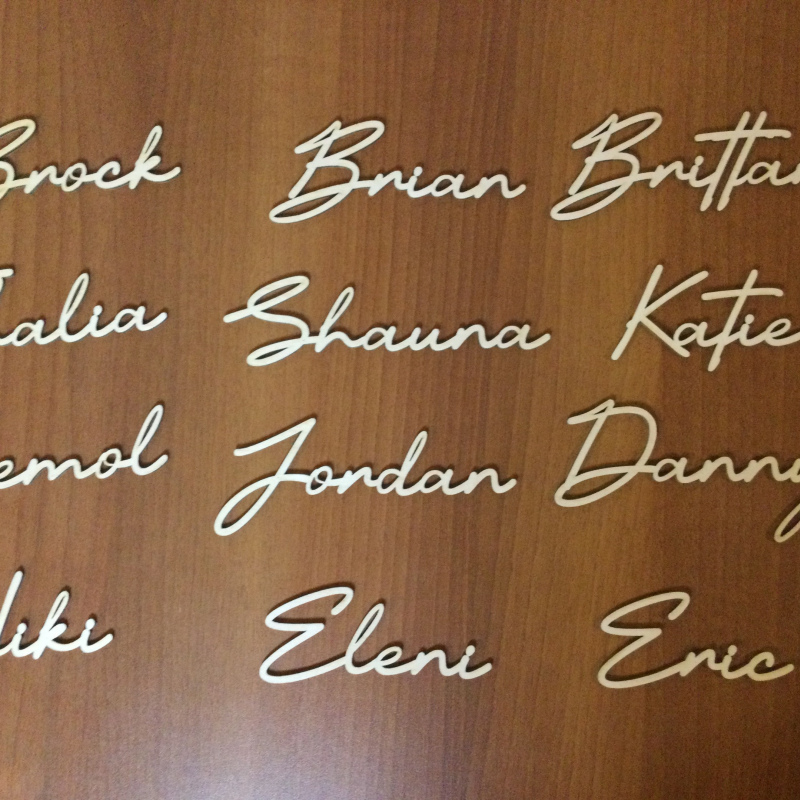 Brock Brian Brittan
alia Shauna Katie
emol Jordan Danny
iki Eleni Eric